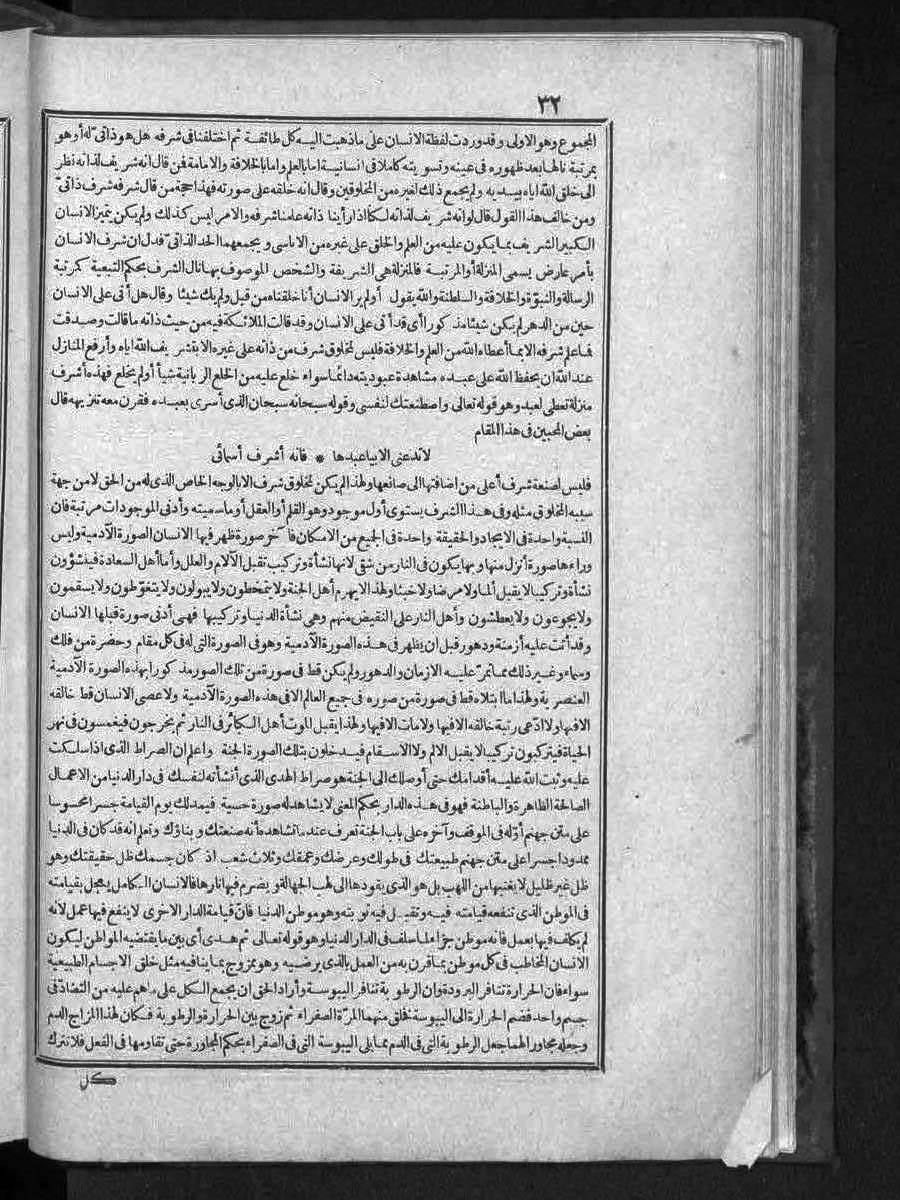 ٣٢
المجموع وهو الاولى وقد وردت لفظة الانسان على ماذهبت اليه كل طائفة ثم اختلفنا فى شرفه هل هو ذاتىّ له أو هو
بمرتبة نالها بعد ظهوره فى عينه وتسويته كاملا فى انسانيته اما بالعلم واما بالخلافة والامامة فمن قال انه شريف لذاته نظر
الى خلق الله اياه بيديه ولم يجمع ذلك لغيره من المخلوقين وقال انه خلقه على صورته فهذا حجة من قال شرفه شرف ذاتىّ
ومن خالف هذا القول قال لو انه شريف لذاته لكنا اذا رأينا ذاته علمنا شرفه والامر ليس كذلك ولم يكن يتميز الانسان
الكبير الشريف بما يكون عليه من العلم والخلق على غيره من الاناسى ويجمعهما الحد الذاتىّ فدل ان شرف الانسان
بأمر عارض يسمى المنزلة أو المرتبة فالمنزلة هى الشريفة والشخص الموصوف بها نال الشرف بحكم التبعية كمرتبة
الرسالة والنبوّة والخلافة والسلطنة والله يقول أولم ير الانسان أنا خلقناه من قبل ولم يك شيئا وقال هل أتى على الانسان
حين من الدهر لم يكن شيئا مذكورا أى قد أتى على الانسان وقد قالت الملائكة فيه من حيث ذاته ما قالت وصدقت
فما علم شرفه الا بما أعطاه الله من العلم والخلافة فليس لمخلوق شرف من ذاته على غيره الا بتشريف الله اياه وأرفع المنازل
عند الله ان يحفظ الله على عبده مشاهدة عبوديته دائما سواء خلع عليه من الخلع الربانية شيأ أو لم يخلع فهذه أشرف
منزلة تعطى لعبد وهو قوله تعالى واصطنعتك لنفسى وقوله سبحانه سبحان الذى أسرى بعبده فقرن معه تنزيهه قال
بعض المحبين فى هذا المقام
لاتدعنى الا بياعبدها * فانه أشرف أسمائى
فليس لصنعة شرف أعلى من اضافتها الى صانعها ولهذا لم يكن لمخلوق شرف الا بالوجه الخاص الذى له من الحق لا من جهة
سببه المخلوق مثله وفى هذا الشرف يستوى أول موجود وهو القلم أو العقل أو ما سميته وأدنى الموجودات مرتبة فان
النسبة واحدة فى الايجاد والحقيقة واحدة فى الجميع من الامكان فآخر صورة ظهر فيها الانسان الصورة الآدمية وليس
وراءها صورة أنزل منها وبها يكون فى النار من شقى لانها نشأة وتركيب تقبل الآلام والعلل وأما أهل السعادة فينشؤون
نشأة وتركيبا لا يقبل ألما ولا مرضا ولا خبثا ولهذا لا يهرم أهل الجنة ولا يتمخطون ولا يبولون ولا يتغوّطون ولا يسقمون
ولا يجوعون ولا يعطشون وأهل النار على النقيض منهم وهى نشأة الدنيا وتركيبها فهى أدنى صورة قبلها الانسان
وقد أتت عليه أزمنة ودهور قبل ان يظهر فى هذه الصورة الآدمية وهو فى الصورة التى له فى كل مقام وحضرة من فلك
وسماء وغير ذلك مما تمرّ عليه الازمان والدهور ولم يكن قط فى صورة من تلك الصور مذكورا بهذه الصورة الآدمية
العنصرية ولهذا ما ابتلاه قط فى صورة من صوره فى جميع العالم الا فى هذه الصورة الآدمية ولا عصى الانسان قط خالقه
الا فيها ولا ادّعى رتبة خالقه الا فيها ولا مات الا فيها ولهذا يقبل الموت أهل الكبائر فى النار ثم يخرجون فيغمسون فى نهر
الحياة فيتركبون تركيبا لا يقبل الالم ولا الاسقام فيدخلون بتلك الصورة الجنة واعلم ان الصراط الذى اذا سلكت
عليه وثبت الله عليه أقدامك حتى أوصلك الى الجنة هو صراط الهدى الذى أنشأته لنفسك فى دار الدنيا من الاعمال
الصالحة الظاهرة والباطنة فهو فى هذه الدار بحكم المعنى لا يشاهد له صورة حسية فيمد لك يوم القيامة جسرا محسوسا
على متن جهنم أوّله فى الموقف وآخره على باب الجنة تعرف عند ما تشاهده أنه صنعتك وبناؤك وتعلم انه قد كان فى الدنيا
ممدودا جسرا على متن جهنم طبيعتك فى طولك وعرضك وعمقك وثلاث شعب اذ كان جسمك ظل حقيقتك وهو
ظل غير ظليل لا يغنيها من اللهب بل هو الذى يقودها الى لهب الجهالة ويضرم فيها نارها فالانسان الكامل يعجل بقيامته
فى الموطن الذى تنفعه قيامته فيه وتقبل فيه توبته وهو موطن الدنيا فانّ قيامة الدار الاخرى لا ينفع فيها عمل لانه
لم يكلف فيها بعمل فانه موطن جزاء لما سلف فى الدار الدنيا وهو قوله تعالى ثم هدى أى بين ما يقتضيه المواطن ليكون
الانسان المخاطب فى كل موطن بما قرن به من العمل بالذى يرضيه وهو ممزوج بما ينافيه مثل خلق الاجسام الطبيعية
سواء فان الحرارة تنافر البرودة وان الرطوبة تنافر اليبوسة وأراد الحق ان يجمع الكل على ما هم عليه من التضادّ فى
جسم واحد فضم الحرارة الى اليبوسة فخلق منهما المرّة الصفراء ثم زوج بين الحرارة والرطوبة فكان لهذا المزاج الدم
وجعله مجاورا لهما جعل الرطوبة التى فى الدم مما يلى اليبوسة التى فى الصفراء بحكم المجاورة حتى تقاومها فى الفعل فلا تترك
كل